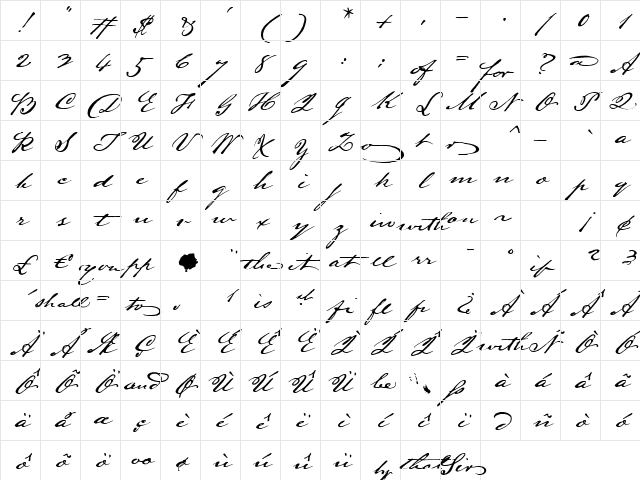 ! " # $ & ' ( ) * + , - . / 0 1
2 3 4 5 6 7 8 9 : ; of = for ? a A
B C D E F G H I J K L M N O P Q
R S T U V W X Y Z ^ _ ` a
b c d e f g h i j k l m n o p q
r s t u v w x y z in with on ~ ¡ ¢
£ € you pp ¨ the it at ll rr - ° if 2 3
´ shall = to , 1 is fi fl ¿ À Á Â Ã
Ä Å Æ Ç È É Ê Ë Ì Í Î Ï with Ñ Ò Ó
Ô Õ Ö and Ø Ù Ú Û Ü be ß à á â ã
ä å æ ç è é ê ë ì í î ï ñ ò ó
ô õ ö oo ø ù ú û ü by that Sirs